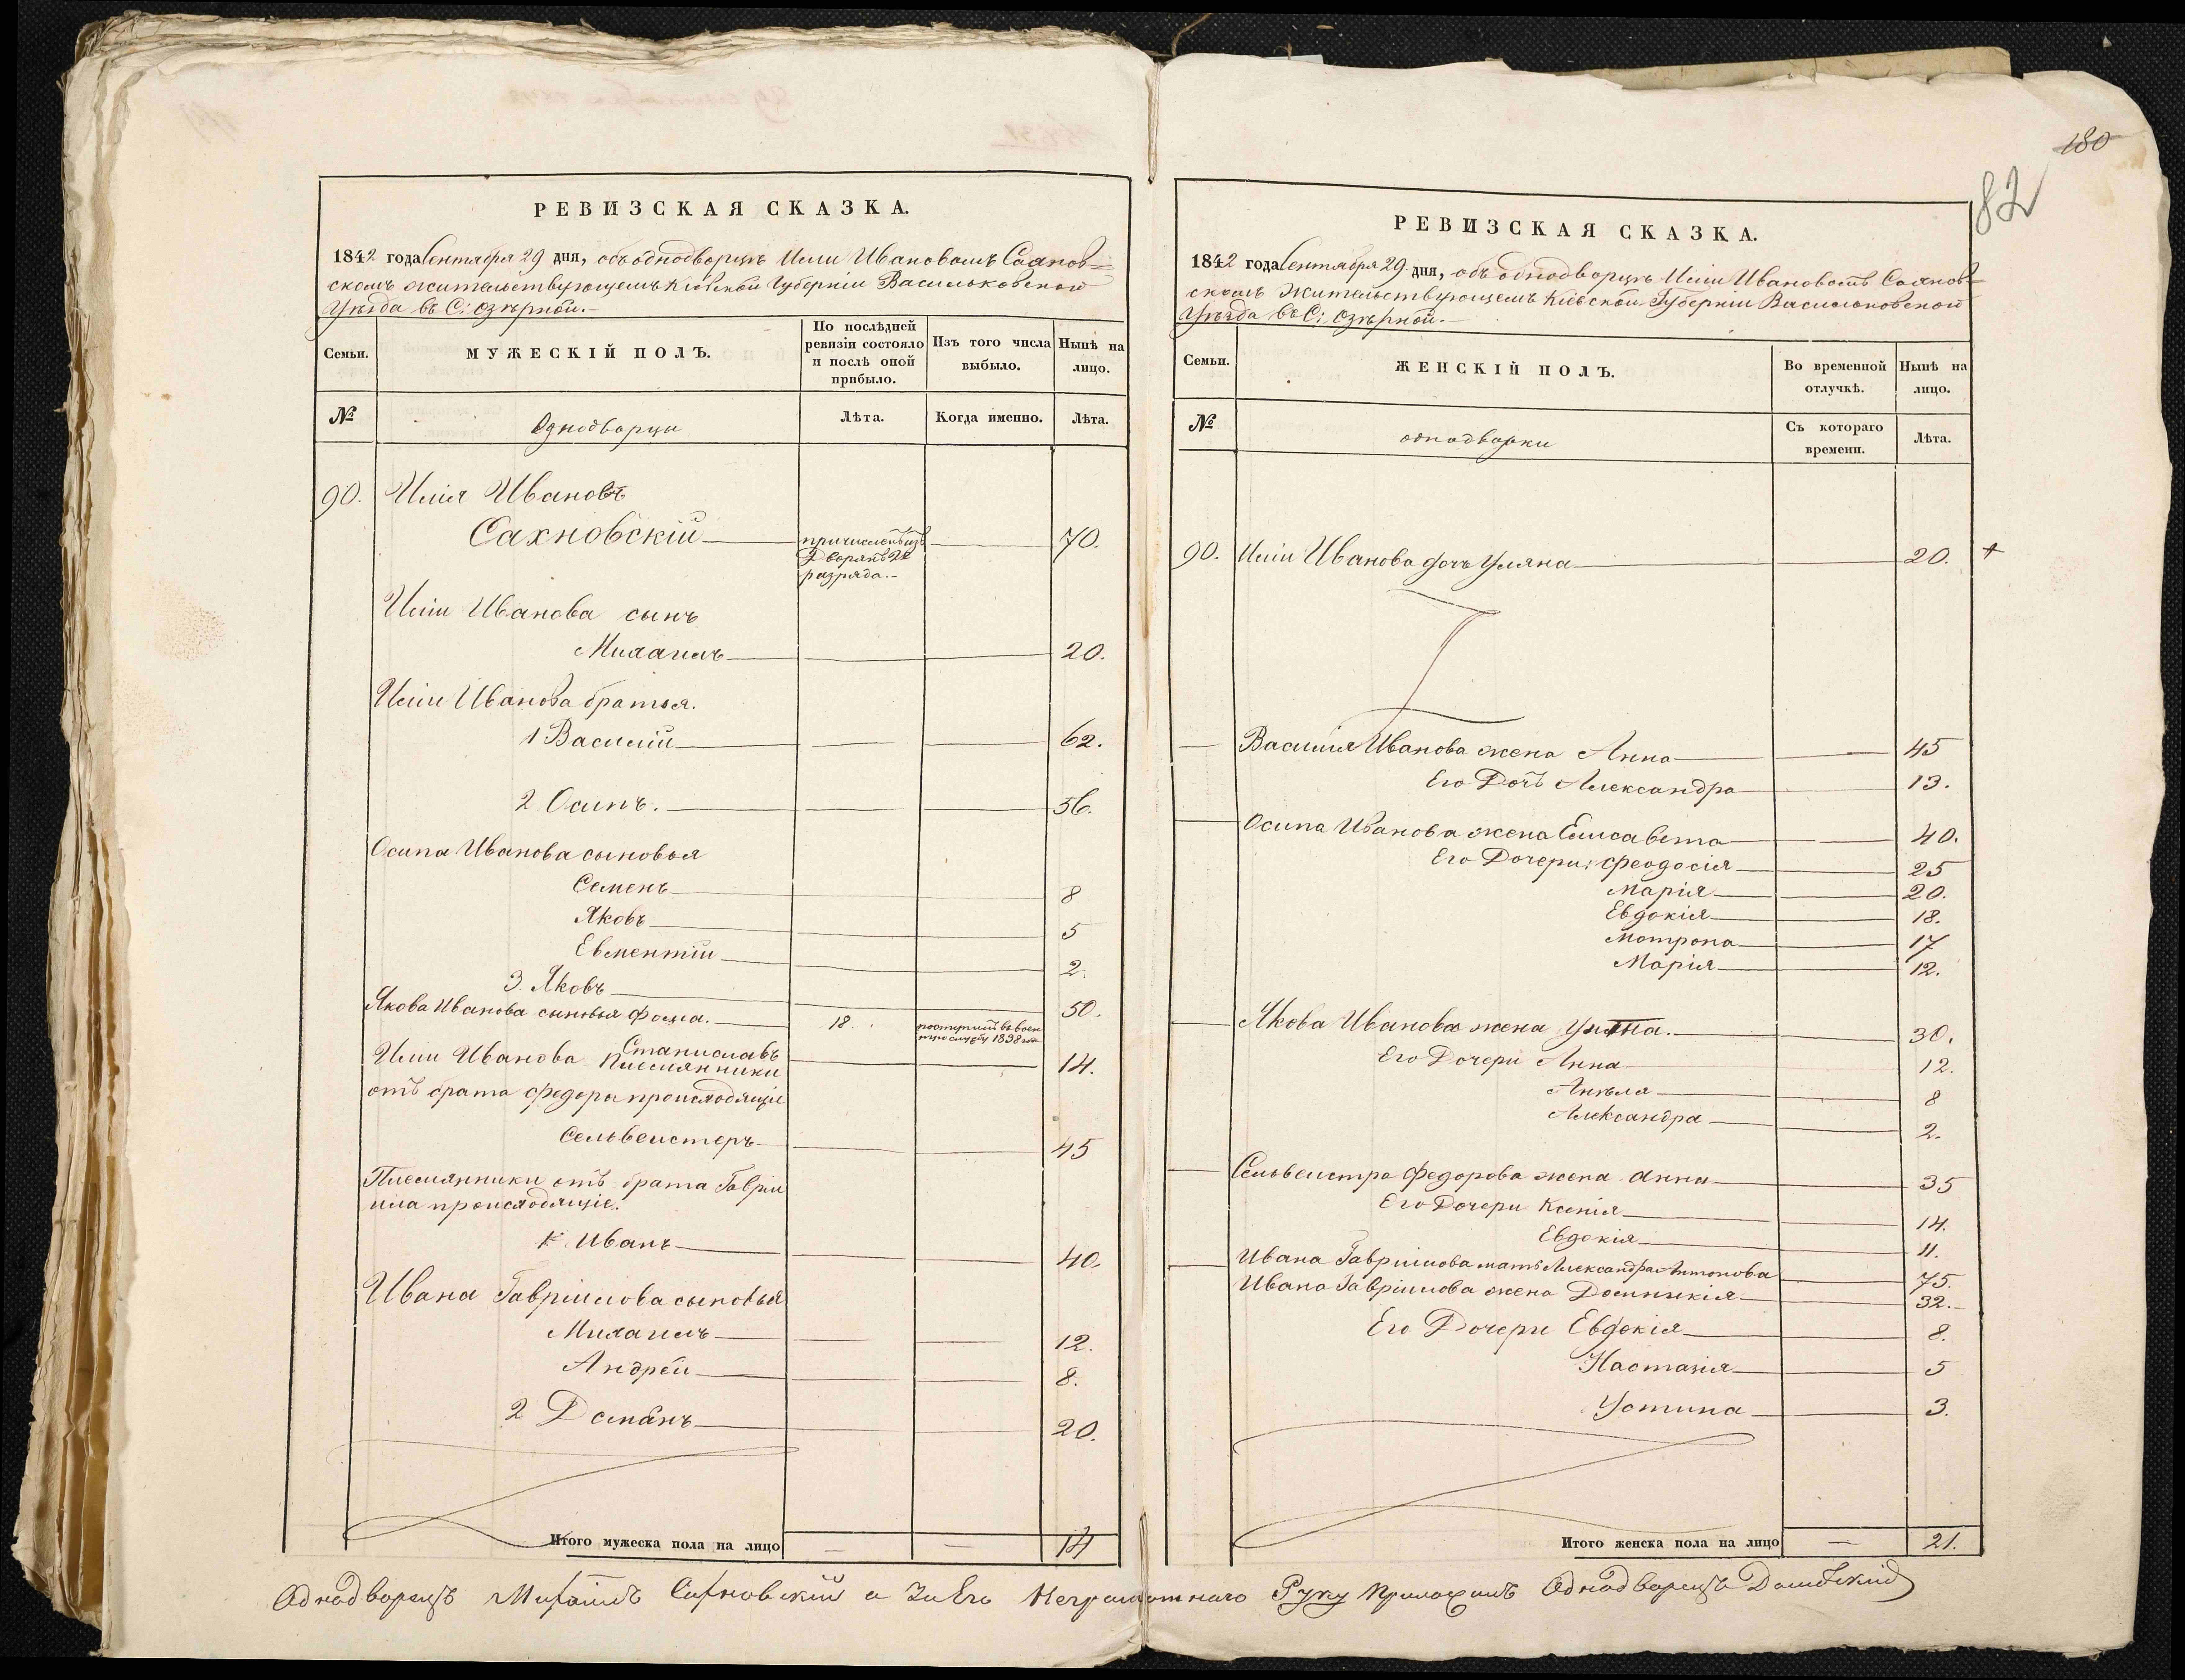 180
82
РЕВИЗСКАЯ СКАЗКА.
1842 года Сентября 29 дня, объ однодворцѣ Иліи Ивановомъ Сахнов=
скомъ жительствующемъ Кіевской Губерніи Васильковскаго
Уѣзда въ С: Озѣрной.
Семьи.
МУЖЕСКІЙ ПОЛЪ.
По послѣдней ревизіи состояло и послѣ оной прибыло.
Изъ того числа выбыло.
Нынѣ на лицо.
№
Однодворцы
Лѣта.
Когда именно.
Лѣта.
90. Илія Ивановъ
Сахновскій 70.
причисленъ изъ
Дворянъ 2
разряда.
Иліи Иванова сынъ
Михаилъ 20.
Иліи Иванова братья.
1 Василій 62.
2 Осипъ. 56.
Осипа Иванова сыновья
Семенъ 8
Яковъ 5
Евментій 2.
3. Яковъ 50.
Якова Иванова сыновья Фома. 18. поступилъ въ воен
ную службу 1838 го
Станиславъ 14.
Иліи Иванова Племянники
отъ брата Федора происходящіе
Сельвестеръ 45
Племянники отъ брата Гаврі
ила происходящіе.
1. Иванъ 40.
Ивана Гавріилова сыновья
Михаилъ 12.
Андрей 8.
2 Демянъ 20.
Итого мужеска пола на лицо — — 14
РЕВИЗСКАЯ СКАЗКА.
1842 года Сентября 29 дня, объ однодворцѣ Иліи Ивановомъ Сахнов=
скомъ Жительствующемъ Кіевской Губерніи Васильковскаго
Уѣзда въ С: Озѣрной.
Семьи.
ЖЕНСКІЙ ПОЛЪ.
Во временной отлучкѣ.
Нынѣ на лицо.
№
однодворки
Съ котораго времени.
Лѣта.
90. Иліи Иванова дочь Уляна 20. +
Василія Иванова жена Анна 45
Его Дочь Александра 13.
Осипа Иванова жена Елисавета 40.
Его Дочери: Феодосія 25
Марія 20.
Евдокія 18.
Мотрона 17
Марія 12.
Якова Иванова жена 30.
Его Дочери Анна 12.
Анѣля 8
Александра 2.
Сельвестра Федорова жена Анна 35
Его Дочери Ксенія 14.
Евдокія 11.
Ивана Гавріилова мать Александра Антонова 75.
Ивана Гавріилова жена Доминикія 32.
Его Дочери Евдокія 8.
Настазія 5
Устина 3.
Итого женска пола на лицо — 21.
Однодворецъ Михаилъ Сахновскій а За Его Неграмотнаго Руку Приложилъ Однодворецъ